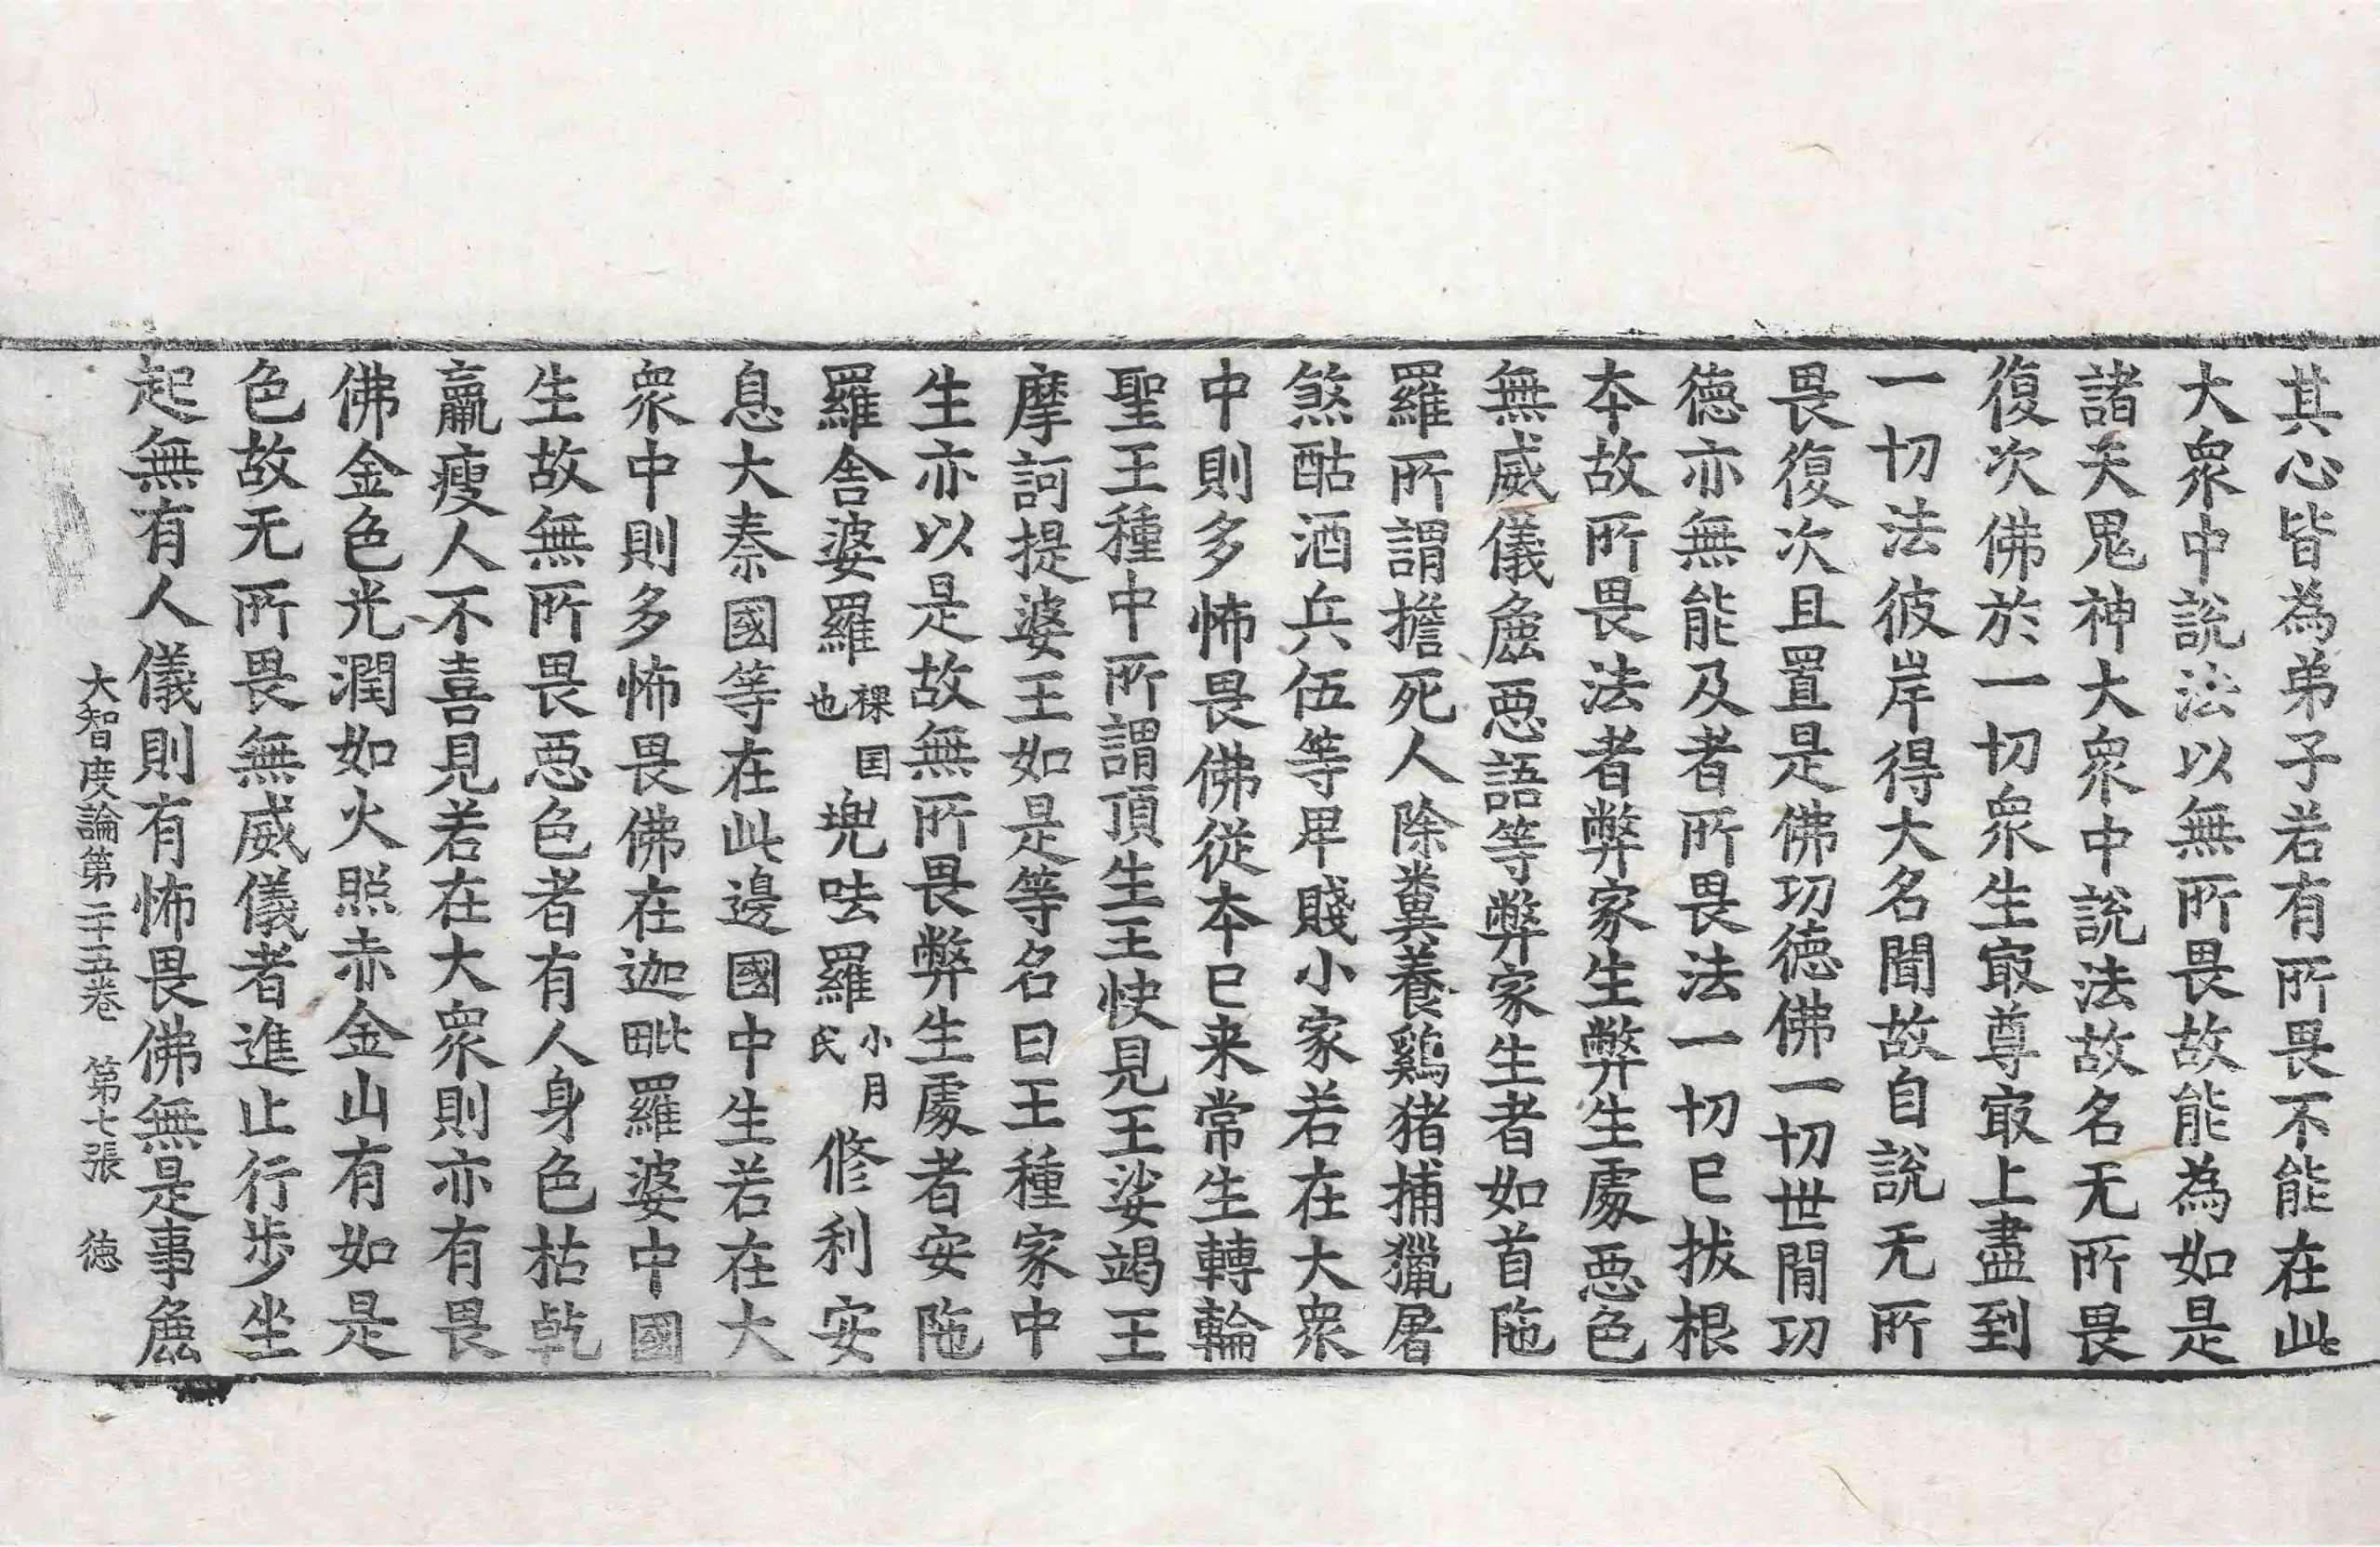 其心皆為弟子若有所畏不能在此
大衆中說法以無所畏故能為如是
諸天鬼神大衆中說法故名无所畏
復次佛於一切衆生㝡尊㝡上盡到
一切法彼岸得大名聞故自說无所
畏復次且置是佛功德佛一切世閒功
德亦無能及者所畏法一切已拔根
本故所畏法者弊家生弊生處惡色
無威儀麁惡語等弊家生者如首陁
羅所謂擔死人除糞養鷄猪捕獵屠
煞酤酒兵伍等卑賤小家若在大衆
中則多怖畏佛從本已来常生轉輪
聖王種中所謂頂生王快見王娑竭王
摩訶提婆王如是等名曰王種家中
生亦以是故無所畏弊生處者安陁
羅舍婆羅裸国也兠呿羅小月氏修利安
息大秦國等在此邊國中生若在大
衆中則多怖畏佛在迦毗羅婆中國
生故無所畏惡色者有人身色枯乾
羸瘦人不喜見若在大衆則亦有畏
佛金色光潤如火照赤金山有如是
色故无所畏無威儀者進止行步坐
起無有人儀則有怖畏佛無是事麁
大智度論第二十五卷　第七張　德